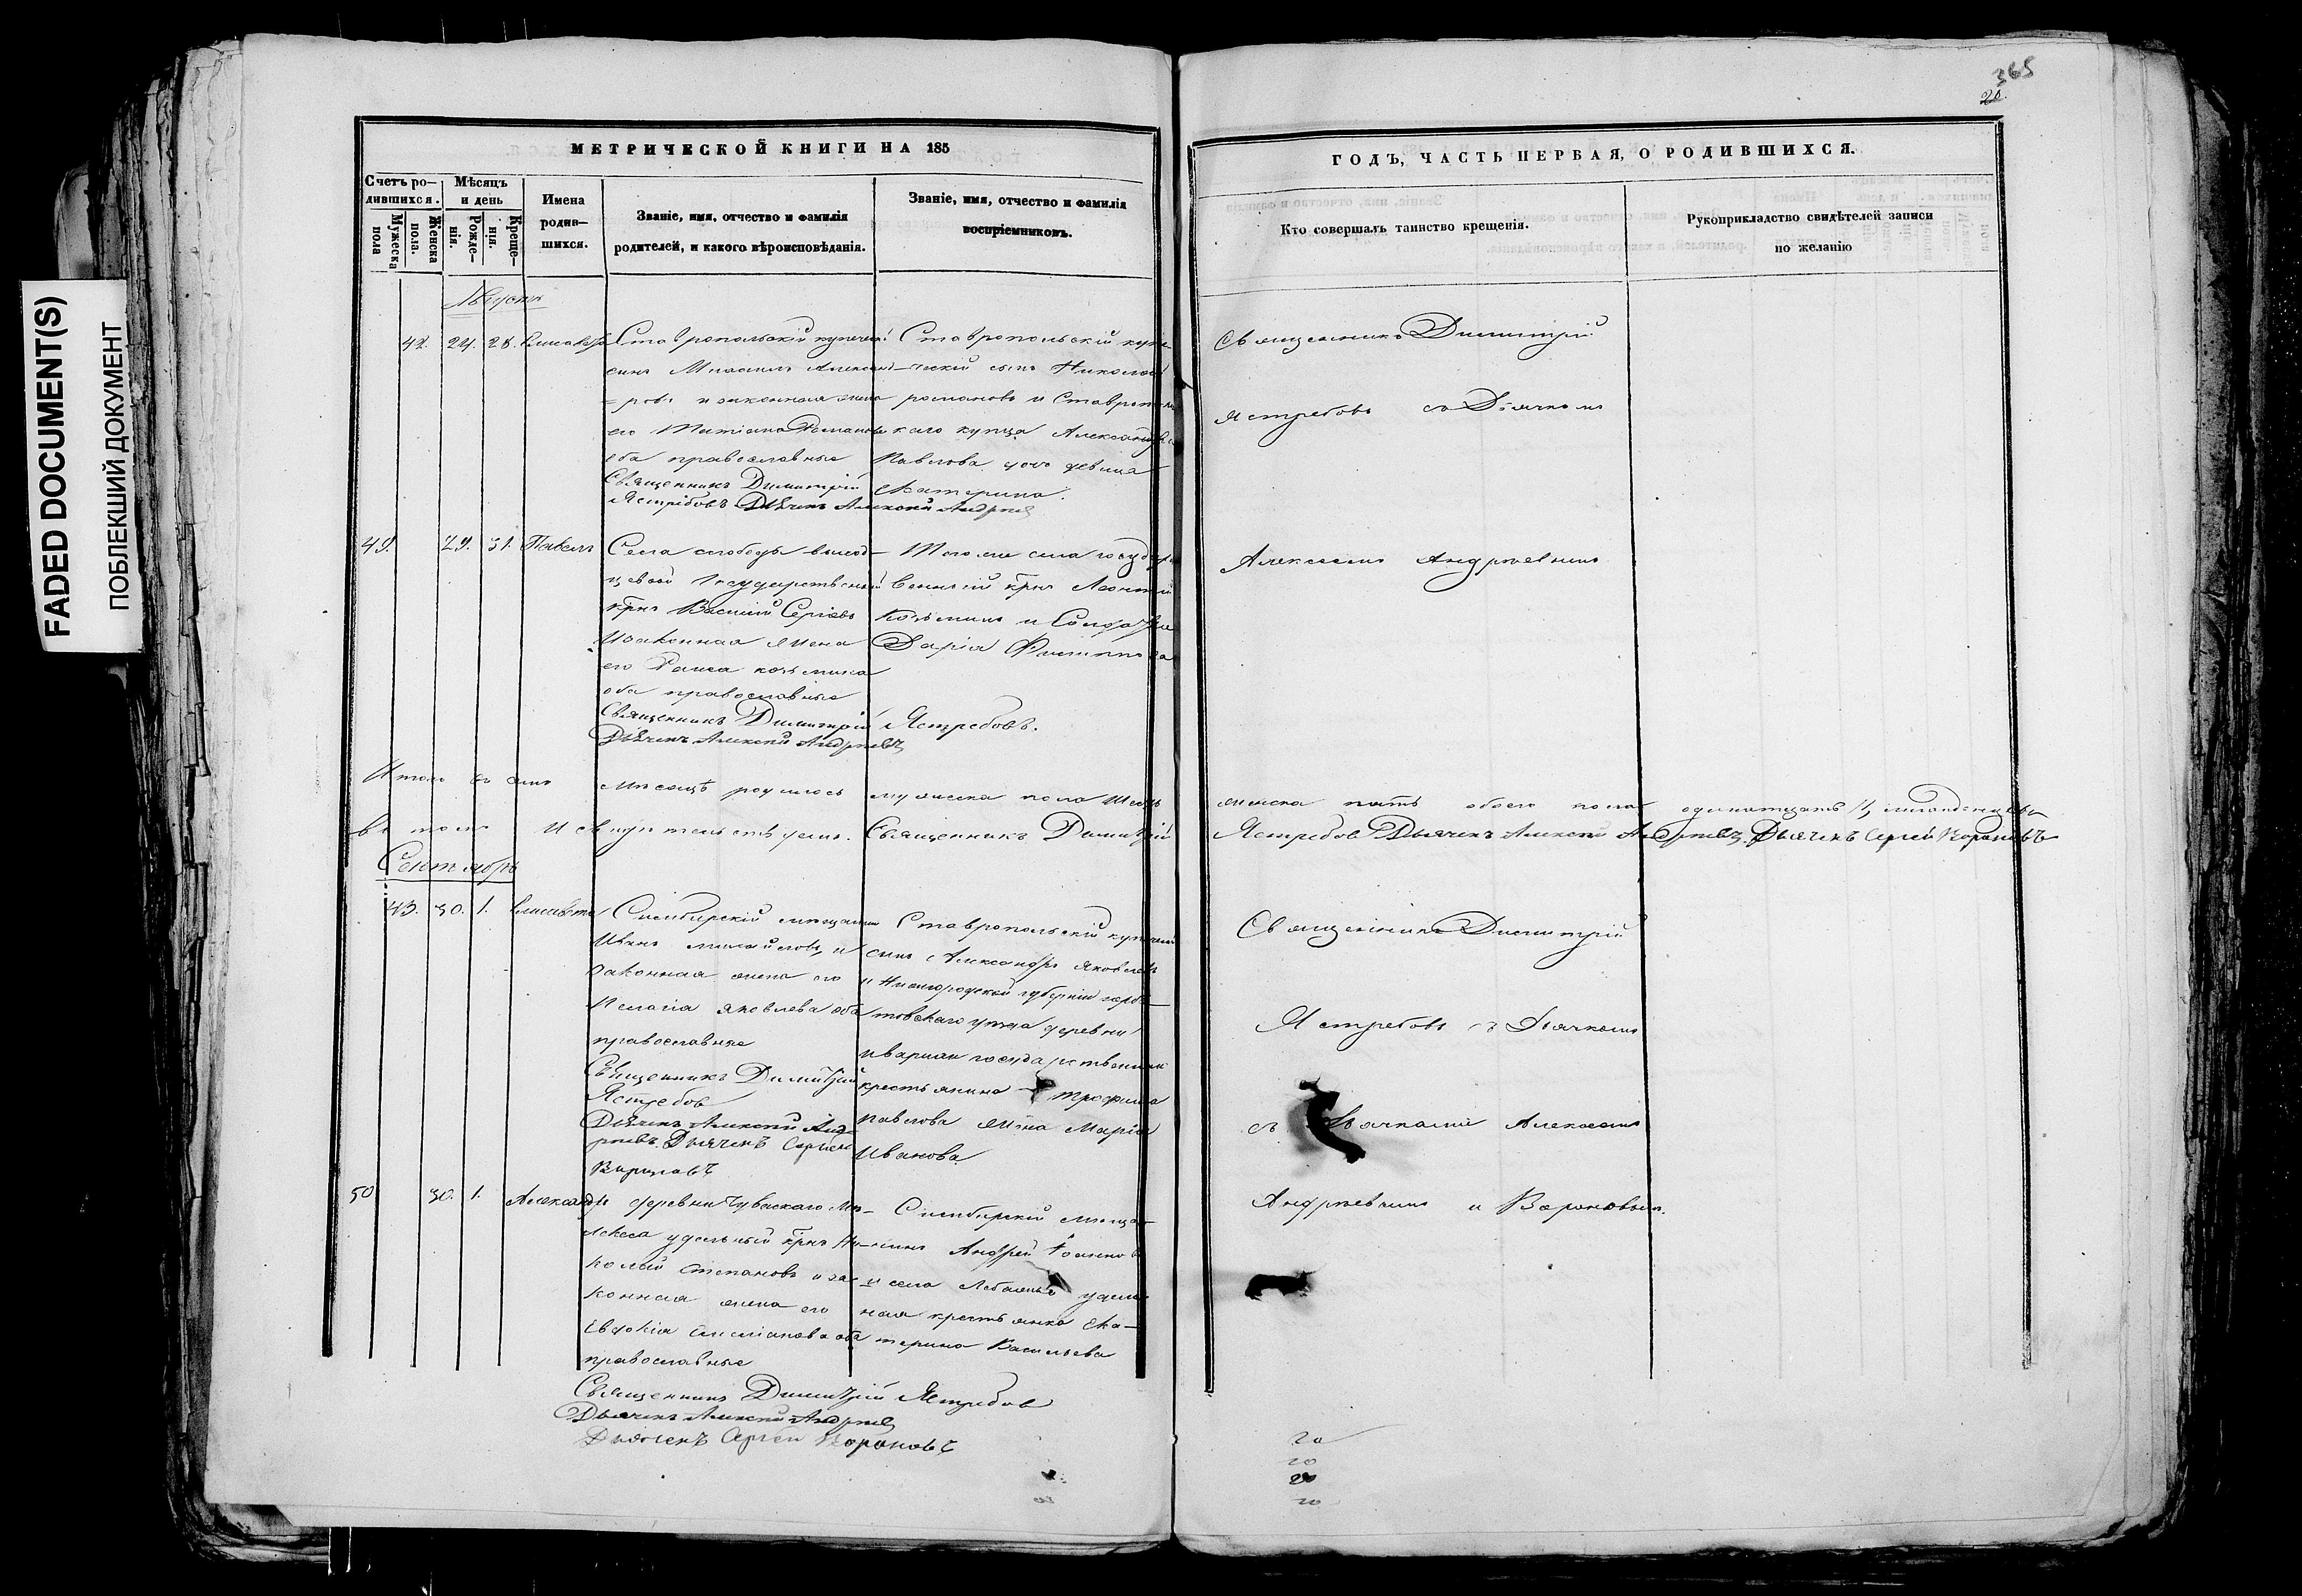 FADED DOCUMENT(S)
ПОБЛЕКШИЙ ДОКУМЕНТ
365
20.
МЕТРИЧЕСКОЙ КНИГИ НА 185
ГОДЪ, ЧАСТЬ ПЕРВАЯ, О РОДИВШИХСЯ.
Счетъ ро-
дившихся.
Мужеска пола
Женска пола.
Мѣсяцъ
и день
Рожде-
нія.
Креще-
нія.
Имена
родив-
шихся.
Званіе, имя, отчество и фамилія
родителей, и какого вѣроисповѣданія.
Званіе, имя, отчество и фамилія
воспріемниковъ.
Кто совершалъ таинство крещенія.
Рукоприкладство свидѣтелей записи
по желанію
Августъ
42. 24. 28. Елисавета
Ставропольскій купеческій
сынъ Михаилъ Александ-
ровъ и законная жена
его Татіана Романова
оба православные
Священникъ Димитрій
Ястребовъ Дьячекъ Алексей Андреев
Ставропольскій купе-
ческій сынъ Николай
романовъ и Ставрополь
скаго купца Александра
Павлова дочь девица
екатерина.
Священникъ Димитрій
Ястребовъ съ Дьячкомъ
49. 29. 31. Павелъ
Села слободы выход-
цевой Государственный
крнъ Василій Сергіевъ
и законная жена
его Раиса козьмина
оба православные
Священникъ Димитрій Ястребовъ.
Дьячекъ Алексей Андреевъ
Того же села государ
венный крнъ Леонтій
Козьминъ и Солдатка
Дарія Филиппова
Алексеемъ Андреевымъ
Итого въ семъ месяцѣ родилось мужеска пола шесть
женска пять обоего пола одинатцать 11, младенцевъ
въ томъ и свидѣтельствуемъ. Священникъ Димитрій
Ястребов Дьячекъ Алексей Андреевъ. Дьячекъ Сергей Вороновъ
Сентябрь
43. 30. 1. Елисавета
Симбирскій мещанинъ
Иванъ михайловъ, и
законная жена его
Пелагія яковлева оба
православные
Священникъ Димитрій
Ястребов
Дьячекъ Алексей Анд
реевъ Дьячекъ Сергей
Вороновъ
Ставропольскій купеческій
сынъ Александръ яковлевъ
и Нижегородской губерніи горба-
товскаго уезда деревни
ивариан государственнаго
крестьянина трофима
павлова жена Марія
Иванова
Священникъ Димитрій
Ястребовъ съ Дьячкомъ
съ Дьячками Алексеемъ
50 30. 1. Александръ
деревни Чувскаго Ме-
лекеса удельный крнъ Ни-
колай Степановъ и за-
конная жена его
Евдокія Емеліанова оба
православные
Священникъ Димитрій Ястребов
Дьячекъ Алексей Андреев
Дьячекъ Сергей Вороновъ
Симбирскій меща-
нинъ Андрей
и села Лебажья удель
ная крестьянка Ека-
терина Васильева
Андреевымъ и Вороновымъ.
20
20
20
20